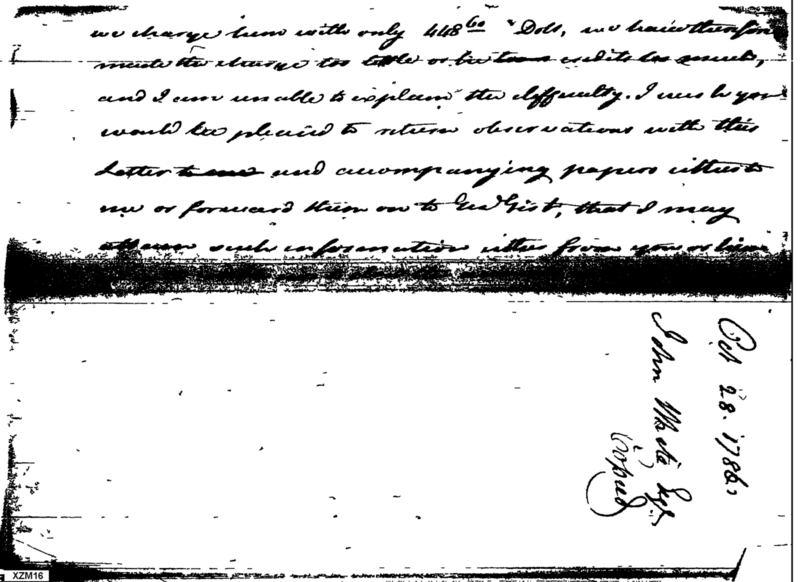 we charge him with only 448 60 Dolls, we have therefore
made the charge too little or he credits too much,
and I am unable to explain the difficulty. I wish you
would be pleased to return observations with this
Letter and accompanying papers either to
me or forward them on to Genl Gist, that I may
obtain such information either from you or him
Oct 28. 1786.
John White Esqr
(Copied)
XZM16